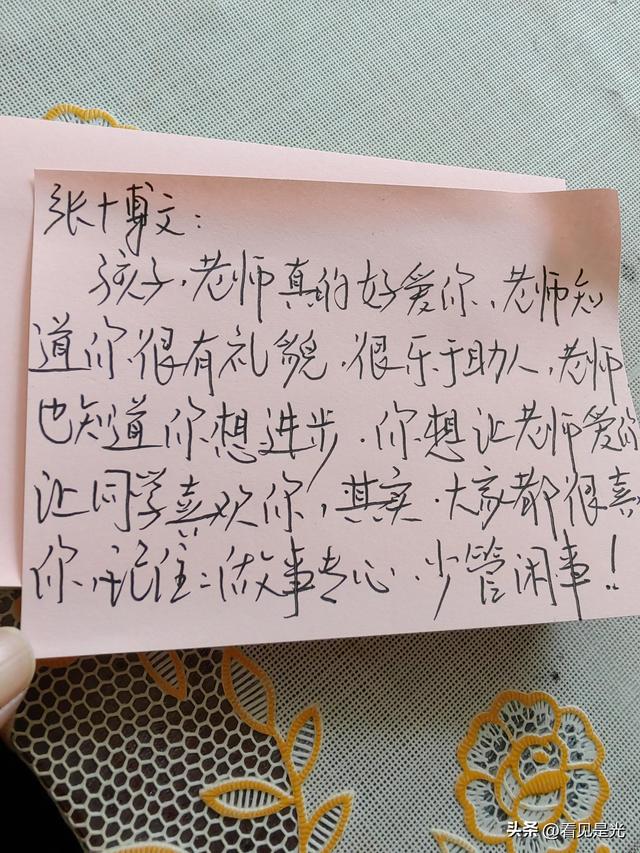 张博文：
孩子，老师真的好爱你，老师知
道你很有礼貌，很乐于助人，老师
也知道你想进步，你想让老师爱你
让同学喜欢你，其实，大家都很喜
你，记住：做事专心，少管闲事！
头条 @看见是光